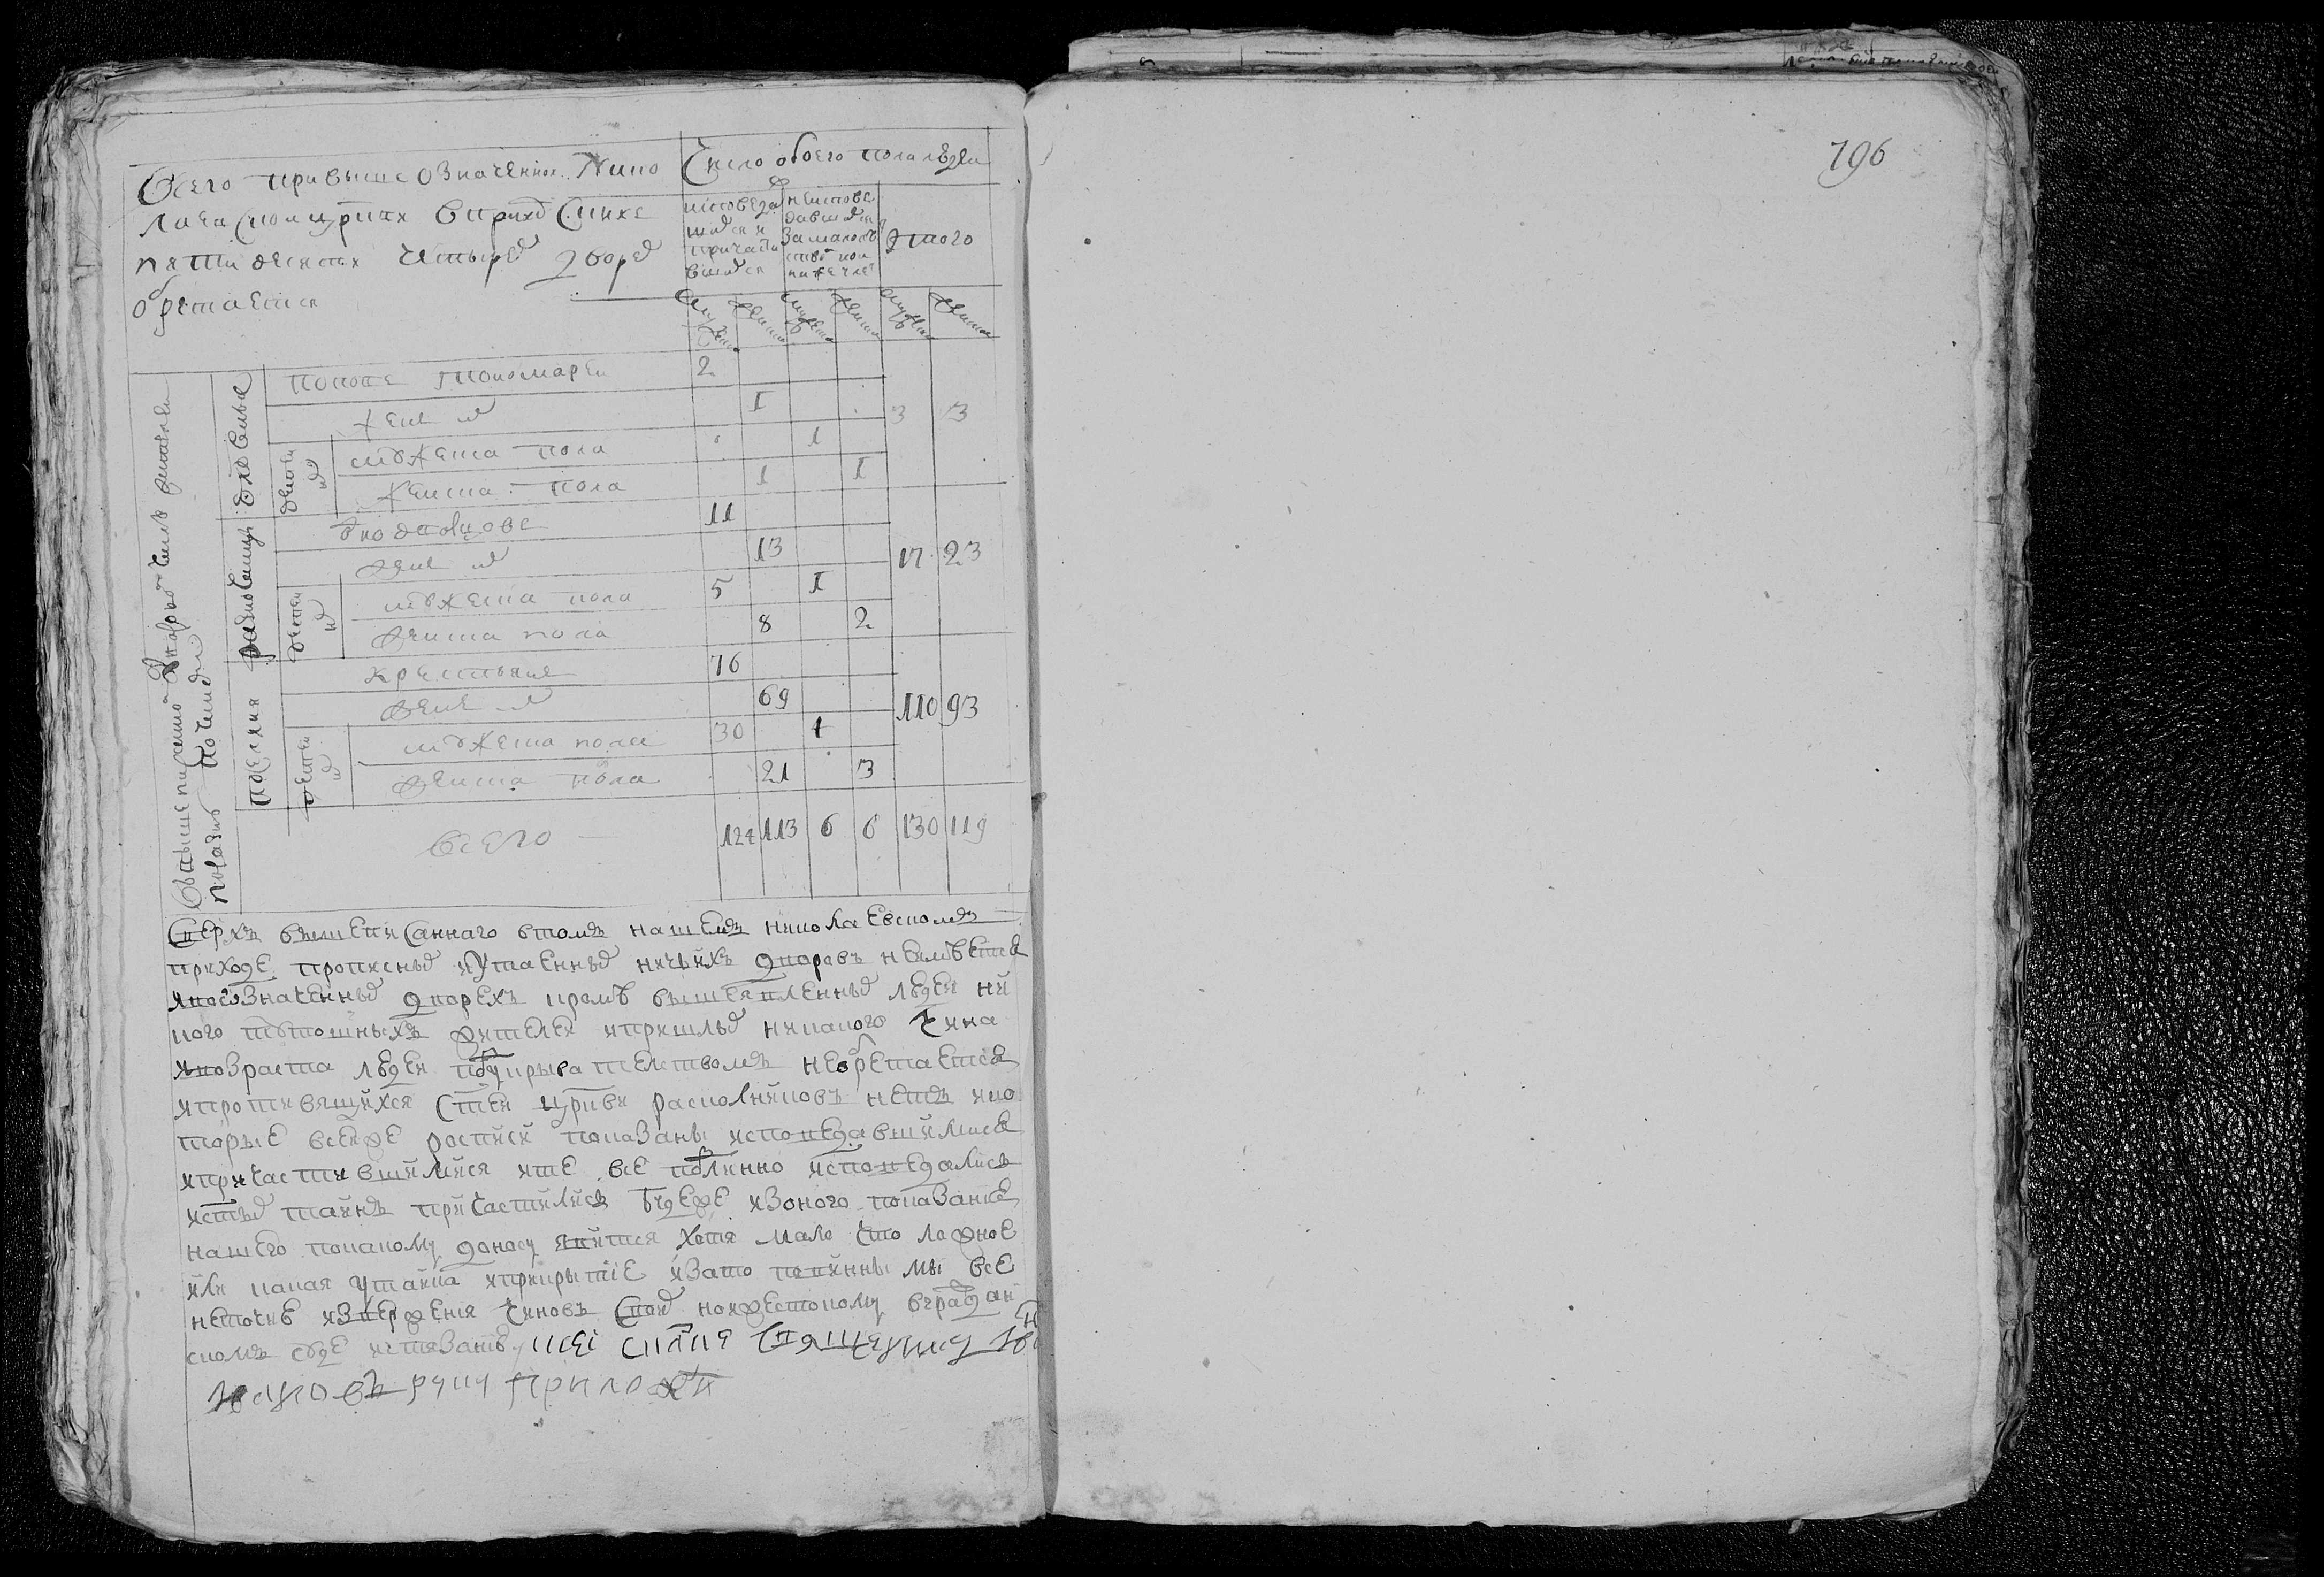 Всего привышеозначенной Нико
лаевской црквѣ в приходѣ оныхъ
пяти десятех четырех дворех
обретается
Число обоего пола людей
исповедав
шихся и
причасти
вшихся
неиспове
давшихся
за малолѣт
ством
Итого
мужеска
женска
мужеска
женска
мужеска
женска
духовные
попове и пономарей 2
жен их 1
детей их
мужеска пола 1
женска пола 1 1
3 3
11
жен их 13
детей их
мужеска пола 5 1
женска пола 8 2
17 23
поселяня
крестьяне 76
жен их 69
детей их
мужеска пола 30 4
женска пола 21 3
110 93
всего 124 113 6 6 130 119
Сверхъ вышеписаннаго в томъ нашемъ николаевскомъ
приходе прописных и утаенных ничьихъ дворовъ неимѣется
и во означенных дворехъ кромѣ вышеявленных людей ни
кого тутошнихъ жителей и пришлых никакого чина
и возраста людей под укрывательствомъ необретается
и противящихся стей цркви расколниковъ нетъ и ко
торые в сей же росписи показаны исповедавшимися
и причастившимися и те все подлинно исповедались
и стых тайнъ причастились буде же из оного показания
нашего по какому доносу явится хотя мало что ложное
или какая утайка и прикрытие и за то повинны мы все
неточию извержения чиновъ своих но и жестокому в граждан
скомъ суде истязанию, к сей скаске священникъ
руку приложил
196